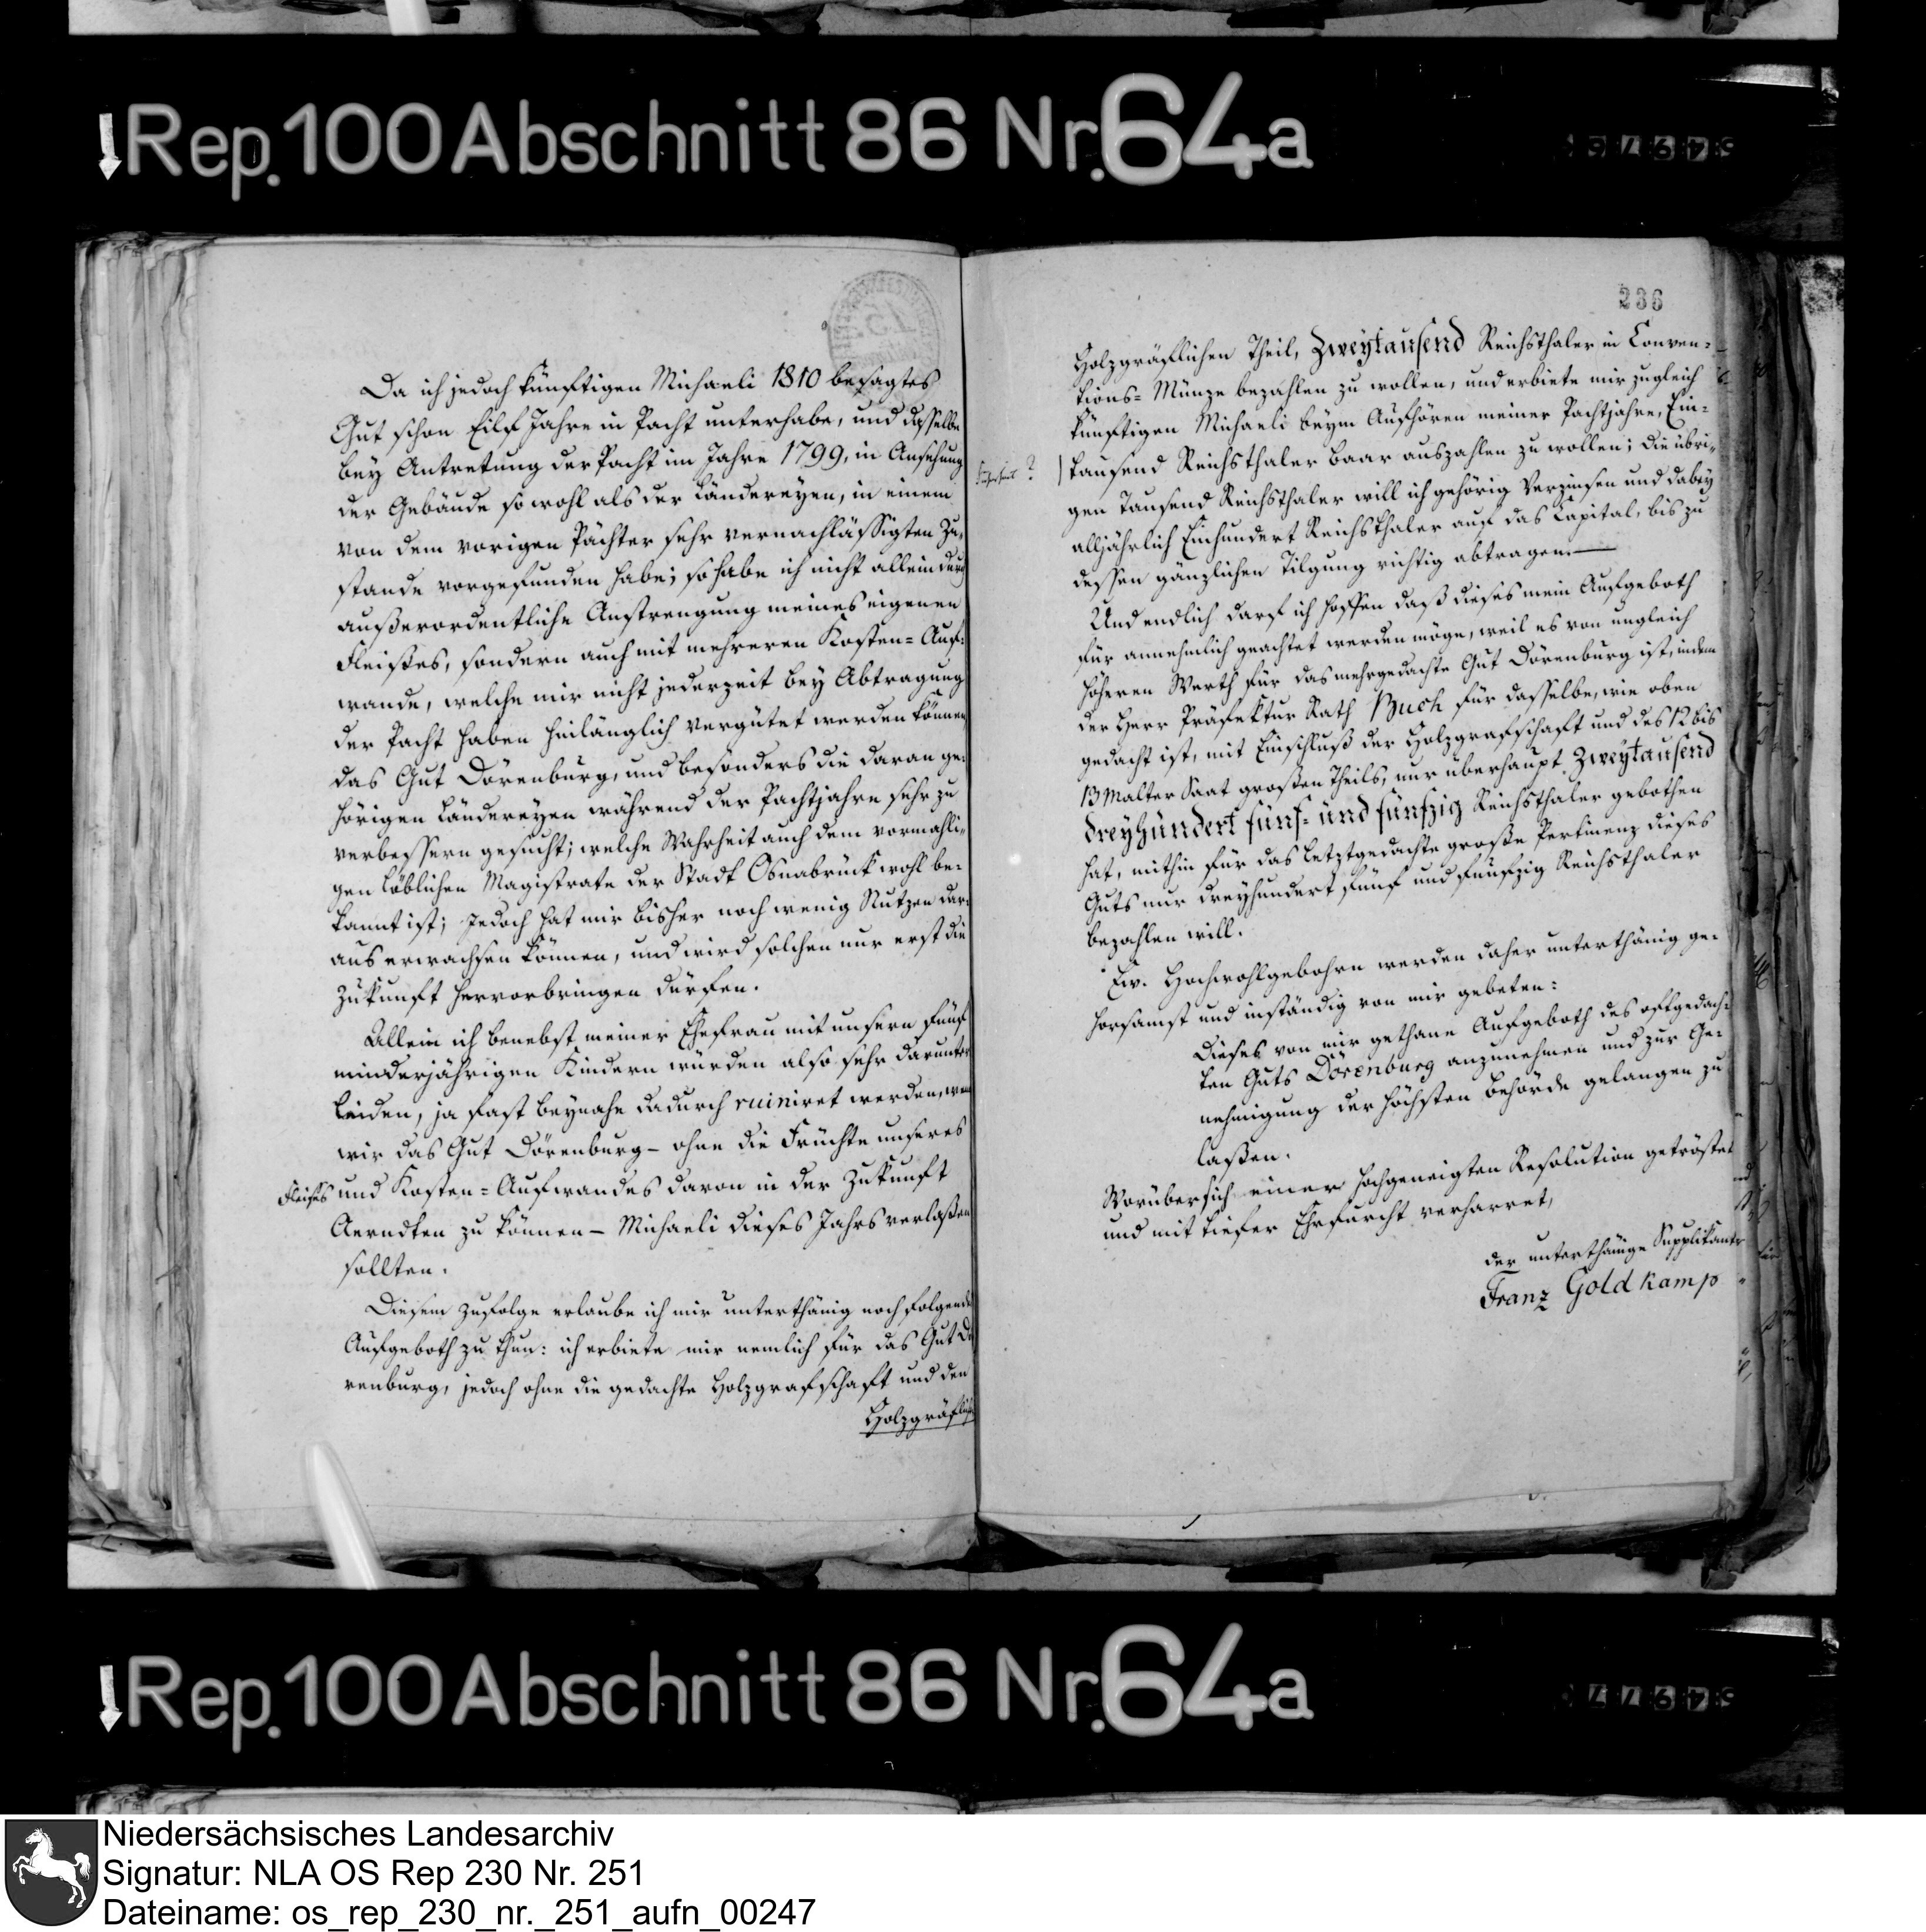 Rep. 100 Abschnitt 86 Nr. 64a
Da ich jedoch künftigen Michaeli 1810 besagtes
Gut schon Eilf Jahre in Pacht unterhabe, und dasselbe
bey Antretung der Pacht im Jahre 1799, in Ansehung
der Gebäude so wohl als der Ländereyen, in einem
von dem vorigen Pächter sehr vernachläßigten Zu-
stande vorgefunden habe; so habe ich nicht allein durch
außerordentliche Anstrengung meines eigenen
Fleißes, sondern auch mit mehreren Kosten-Auf-
wande, welche mir nicht jederzeit bey Abtragung
der Pacht haben hinlänglich vergütet werden können,
das Gut Dörenburg, und besonders die daran ge-
hörigen Ländereyen während der Pachtjahre sehr zu
verbessern gesucht; welche Wahrheit auch dem vormahli-
gen löblichen Magistrate der Stadt Osnabrück wohl be-
kannt ist; jedoch hat mir bisher noch wenig Nutzen dar-
aus erwachsen können, und wird solchen nur erst die
Zukunft hervorbringen dürfen.
Allein ich benebst meiner Ehefrau mit unsern fünf
minderjährigen Kindern würden also sehr darunter
leiden, ja fast beynahe dadurch ruiniret werden, wenn
wir das Gut Dörenburg – ohne die Früchte unseres
Fleißes und Kosten-Aufwandes davon in der Zukunft
Aerndten zu können – Michaeli dieses Jahrs verlaßen
sollten.
Diesem zufolge erlaube ich mir unterthänig noch folgendes
Aufgeboth zu thun: ich erbiete mir nemlich für das Gut Dö-
renburg, jedoch ohne die gedachte Holzgrafschaft und den
Holzgräflichen
236
Holzgräflichen Theil, Zweytausend Reichsthaler in Conven-
tions-Münze bezahlen zu wollen, und erbiete mir zugleich
künftigen Michaeli beym Aufhören meiner Pachtjahre, Ein-
tausend Reichsthaler baar auszahlen zu wollen; die übri-
gen Tausend Reichsthaler will ich gehörig verzinsen und dabey
alljährlich Einhundert Reichsthaler auf das Capital, bis zu
dessen gänzlichen Tilgung richtig abtragen.—
Und endlich darf ich hoffen daß dieses mein Aufgeboth
für annehmlich geachtet werden möge, weil es von ungleich
höheren Werth für das mehrgedachte Gut Dörenburg ist, indem
der Herr Präfektur Rath Buch für dasselbe, wie oben
gedacht ist, mit Einschluß der Holzgrafschaft und des 12 bis
13 Malter Saat großen Theils, nur überhaupt Zweytausend
dreyhundert fünf- und fünfzig Reichsthaler gebothen
hat, mithin für das letztgedachte große Pertinenz dieses
Guts nur dreyhundert fünf und fünfzig Reichsthaler
bezahlen will.
Ew. Hochwohlgebohrn werden daher unterthänig ge-
horsamst und inständig von mir gebeten:
dieses von mir gethane Aufgeboth des oftgedach-
ten Guts Dörenburg anzunehmen und zur Ge-
nehmigung der höchsten Behörde gelangen zu
laßen.
Worüber sich einer hochgeneigten Resolution getröstet
und mit tiefer Ehrfurcht verharret,
der unterthänige Supplikante
Franz Goldkamp
Rep. 100 Abschnitt 86 Nr. 64a
Niedersächsisches Landesarchiv
Signatur: NLA OS Rep 230 Nr. 251
Dateiname: os_rep_230_nr._251_aufn_00247